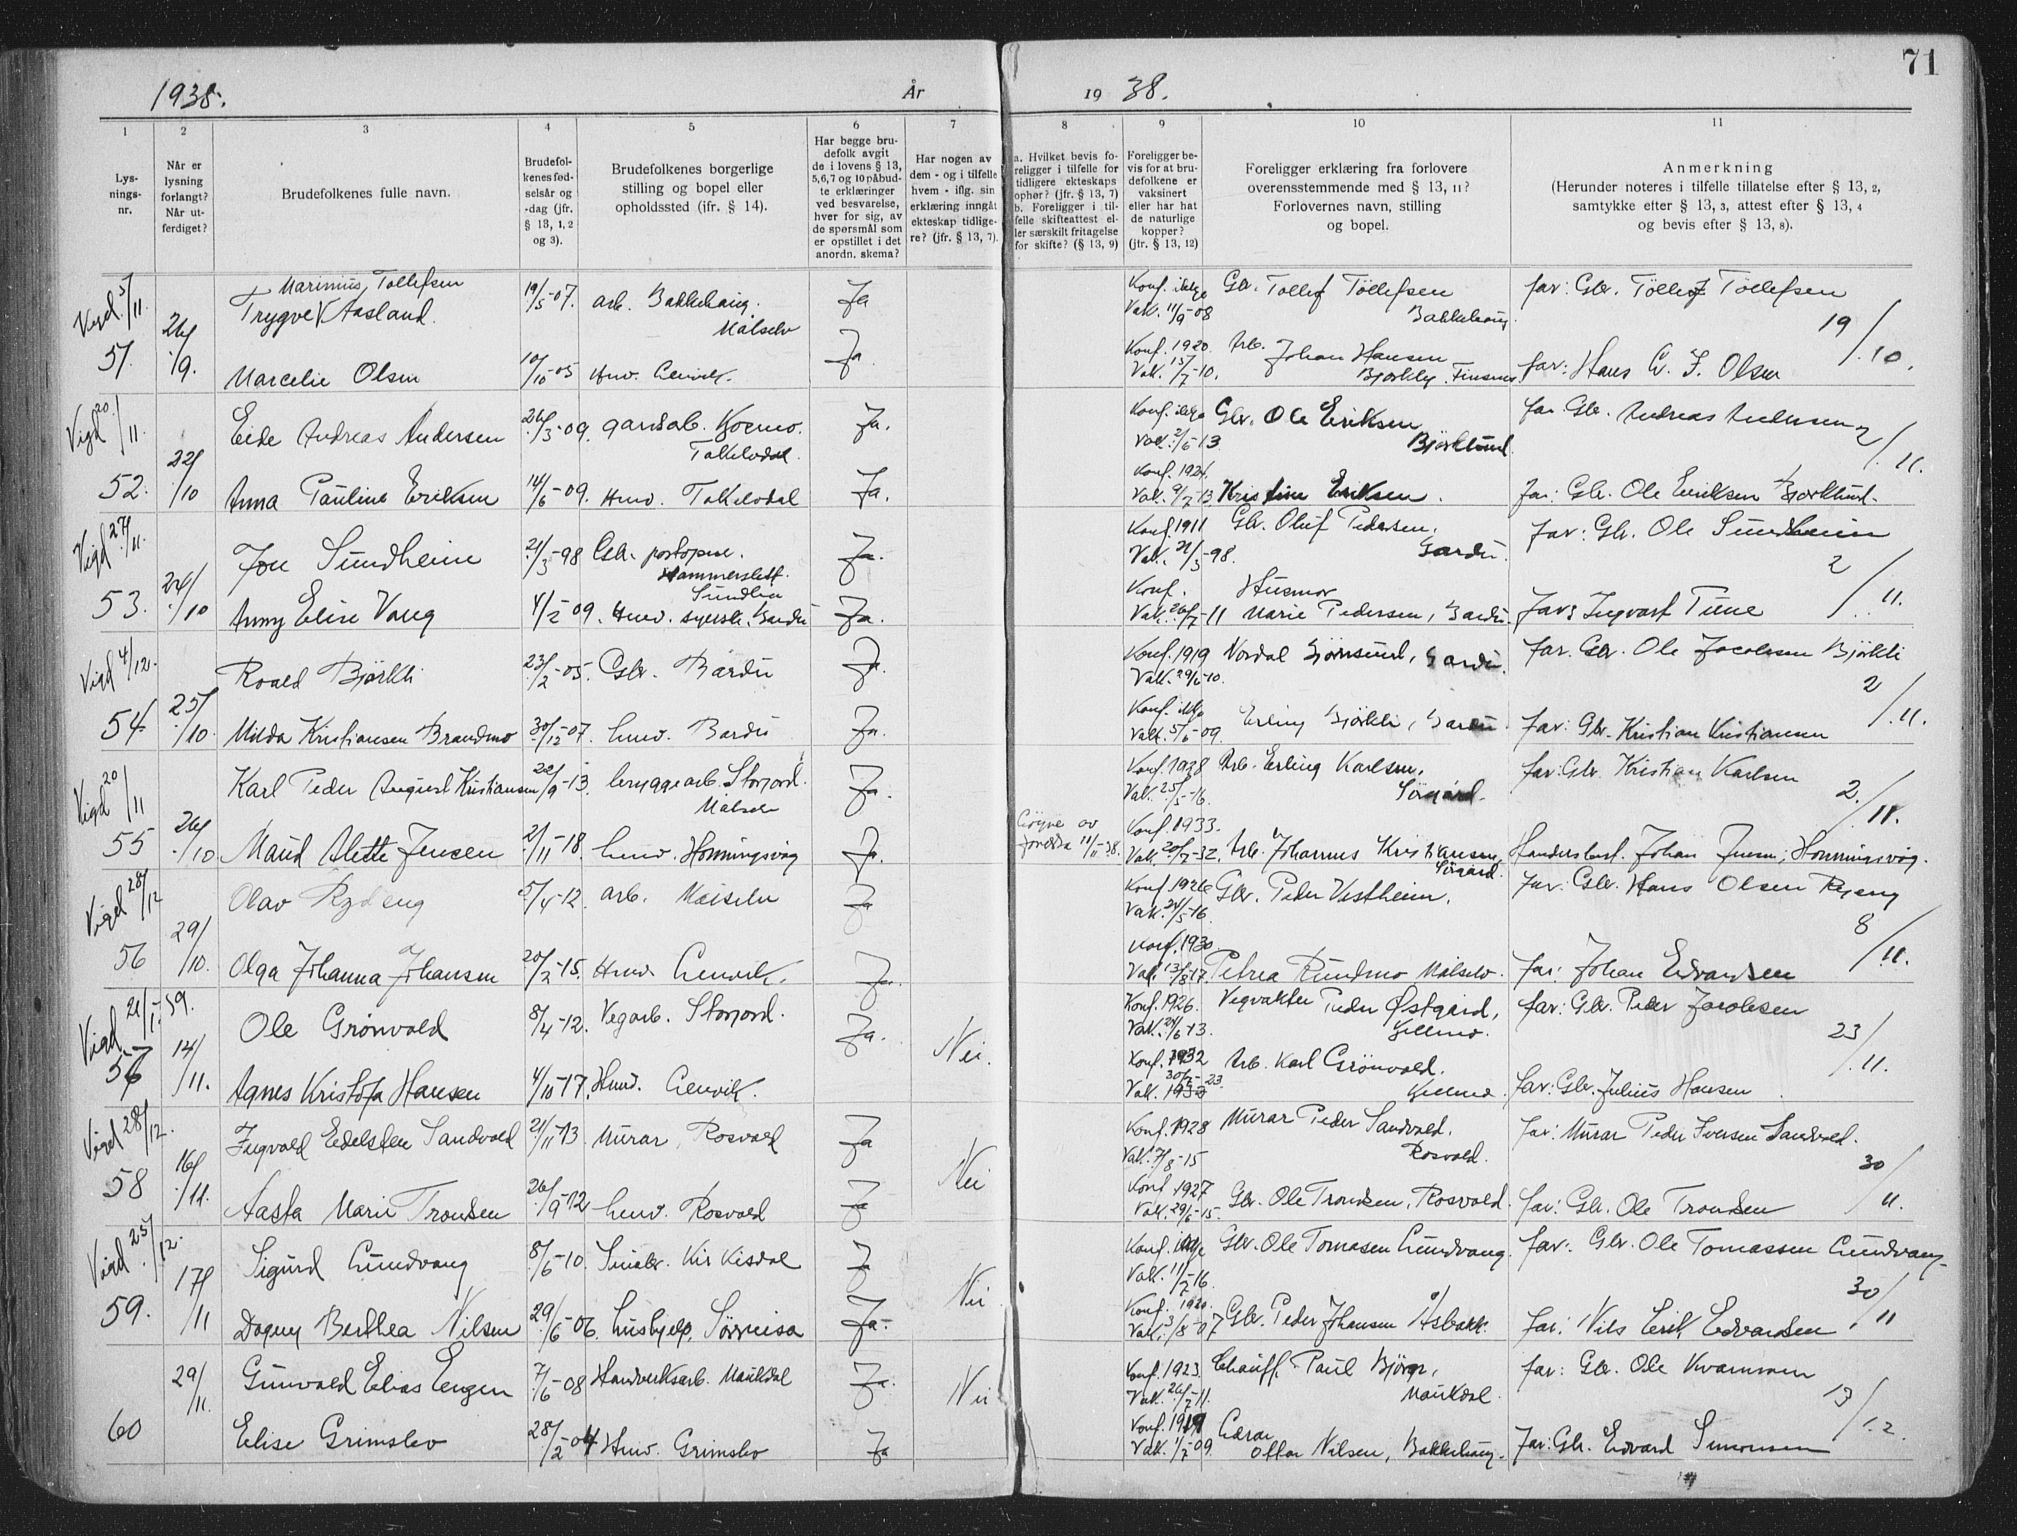 71
1938.
År
19 38.
1 2 3 4 5 6 7 8 9 10 11
Lys-
nings-
nr.
Når er
lysning
forlangt?
Når ut-
ferdiget?
Brudefolkenes fulle navn.
Brudefol-
kenes fød-
selsår og
-dag (jfr.
§ 13, 1, 2
og 3).
Brudefolkenes borgerlige
stilling og bopel eller
opholdssted (ifr. § 14).
Har begge bru-
defolk avgit
de i lovens § 13,
5,6,7 og 10 påbud-
te erklæringer
ved besvarelse,
hver for sig, av
de spørsmål som
er opstillet i det
anordn. skema?
Har nogen av
dem - og i tilfelle
hvem - iflg. sin
erklæring inngåt
ekteskap tidlige-
re? (jfr. § 13, 7).
a. Hvilket bevis fo-
religger i tilfelle for
tidligere ekteskaps
ophør? (jfr. § 13, 7)
b. Foreligger i til-
felle skifteattest el-
ler særskilt fritagelse
for skifte? (§ 13, 9)
Foreligger be-
vis for at bru-
defolkene er
vaksinert
eller har hat
de naturlige
kopper?
(jfr. § 13, 12)
Foreligger erklæring fra forlovere
overensstemmende med § 13, 11?
Forlovernes navn, stilling
og bopel.
Anmerkning
(Herunder noteres i tilfelle tillatelse efter § 13, 2,
samtykke efter § 13, 3, attest efter § 13, 4
og bevis efter § 13, 8).
Vigd 5/11 Marinius Tollefsen
Trygve Aasland 19/5-07. arb. Bakkehaug. Målselv Ja Vak. 11/9-08 Gbr. Tollef Tollefsen Bakkehaug. far: Gbr. Tollef Tollefsen
19/10.
51. 26/9. Marcelie Olsen 10/10-05 Hnv. Ja. Konf. 1920. Vak. 15/7-10. Arb. Johan Hansen far: Hans Olsen
Vigd 20/11. Eide Andreas Andersen 26/3-09. Ja. Gbr. Ole Eriksen Bjørklund. far. Gbr. Andreas Andersen
2/11.
52. 22/10 Anna Pauline Eriksen 14/6-09. Hnv. Ja. Konf. 1924. Kristine Eriksen. far: Gbr. Ole Eriksen Bjørklund.
Vigd 27/11. Jon Sundheim 21/3-98 Ja. Konf. 1911 Vak. 21/3-98. Gbr. Oluf Pedersen. Bardu. far: Gbr. Ole Sundheim
2/11.
53. 24/10 Anny Elise Vang 4/2-09. Hnv. Bardu Ja. Konf. Vak. 26/7-11 Husmor Marie Pedersen, Bardu. far: Ingvart
Vigd 4/12. Roald Bjørkli 23/2-05. Gbr. Bardu Ja. Konf. 1919 Nordal Bjørnsund, Bardu. far. Gbr. Ole Jacobsen Bjørkli
2/11.
54 25/10. Milda Kristiansen Brandmo 30/12-07. hnv. Bardu Ja. Vak. 5/6-09. Erling Bjørkli, Bardu. far: Gbr. Kristian Kristiansen
Vigd 20/11 Karl Peder August Kristiansen 22/9-13. bryggearb. Storjord. Målselv Ja. Konf. 1928 Vak. 25/5-16. Arb. Erling Karlsen, far: Gbr. Kristian Karlsen
2./11.
55 26/10 Maud Alette Jensen 2/11-18. hnv. Honningsvåg Ja. 11/11-38. Konf. 1933. Vak. 20/7-32. Arb. Johannes Kristiansen, Johan Jensen, Honningsvåg.
Vigd 28/12 Olav Rydeng 5/4-12. arb. Målselv Ja Konf. 1926 Vak. 24/5-16. Gbr. Peder Vestheim. far: Gbr. Hans Olsen Ryeng
8/11.
56 29/10. Olga Johanna Johansen 20/2-15. Hnv. Ja. Konf. 1930. Vak. 13/8-17. Petrea Rundmo Målselv. far: Johan Edvardsen
Vigd 21/1. 39. Ole Grønvold 8/4-12. Vegarb. Storjord. Ja. Nei. Konf. 1926. Vak. 24/6-13. Vegvakter Peder Østgård, far: Gbr. Peder Jacobsen
23/11.
57 14/11. Agnes Kristofa Hansen 4/10-17. Hnv. Konf. 1932 Arb. Karl Grønvold. far: Gbr. Julius Hansen
Vigd 28/12. Ingvald Edelsten Sandvold 21/11-13 Murar, Rosvold Ja Nei Konf. 1928 Vak. 7/8-15 Murar Peder Sandvold. Rosvold. far: Murar Peder Iversen Sandvold.
30/11.
58 16/11. Aasta Marie Trondsen 26/9-12 hnv. Rosvold Ja Konf. 1927 Vak. 29/6-15. Gbr. Ole Trondsen, Rosvold. far: Gbr. Ole Trondsen
Vigd 25/12. Sigurd Lundvang 8/6-10. Småbr. Kirkesdal Ja Nei Vak. 11/7-16. Gbr. Ole Tomasen Lundvang. far: Gbr. Ole Tomassen Lundvang
30/11
59. 17/11 Dagny Berthea Nilsen 29/6-06. hushjelp, Sørreisa Ja. Konf. 1920. Vak. 3/8-07 Gbr. Peder Johansen far: Nils Erik Edvardsen
29/11. Gunvald Elias Engen 7/6-08 Handverksarb. Maukdal Ja. Nei Konf. 1923. Vak. 26/7-11. Chauff. Paul Maukdal. far: Gbr. Ole
13/12.
60 Elise Grimslev 28/2-04 Hnv. Grimslev Ja Konf. 1919 Vak. 1/7-09. Ottar Nilsen, Bakkehaug. far: Gbr. Edvard Simonsen